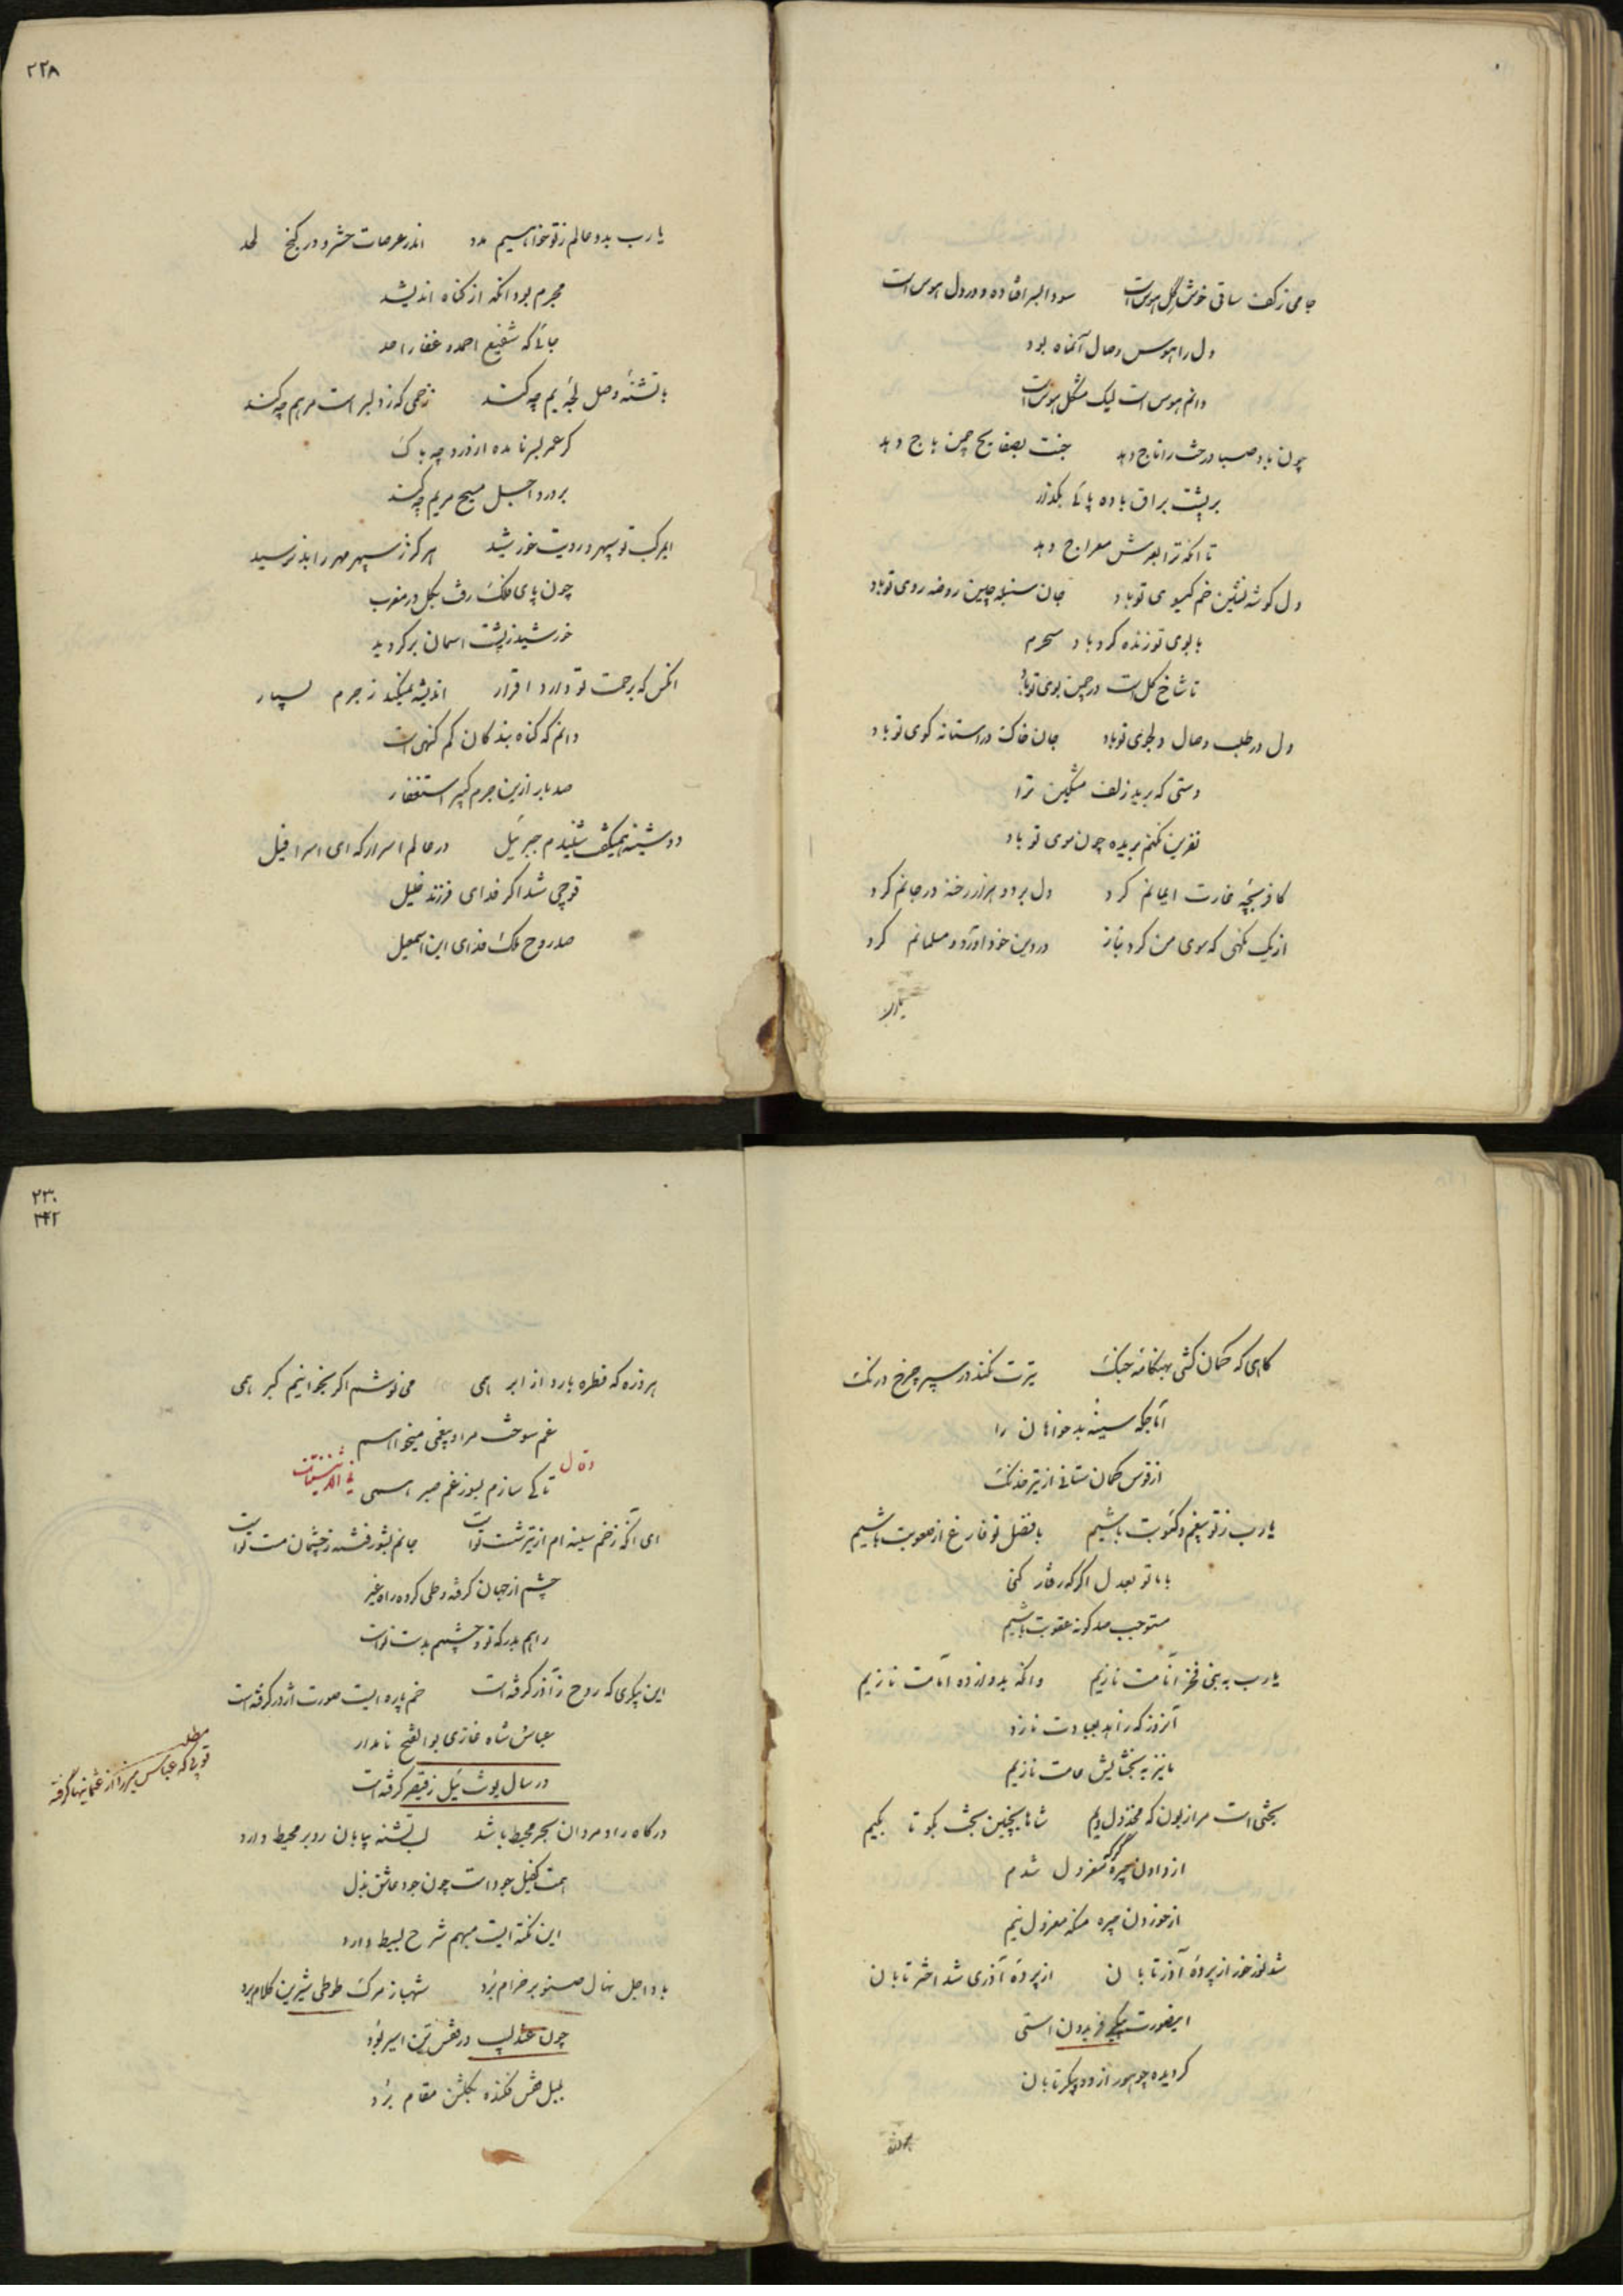 جامی ز کف ساقی خوشگل هوس است سودا بسر افتاده و در دل هوس است
دل را هوس وصال آنماه بود
دانم هوس است لیک مشکل هوس است
چون باد صبا درخت را تاج دهد جنت چمن باج دهد
بر پشت براق باده پائی بگذار
تا آنکه ترا بعرش معراج دهد
دل گوشه نشین خم گیسوی تو باد جان سنبله چین روضه روی تو باد
با بوی تو زنده گرد باد سحرم
تا شاخ گل است در چمن بوی تو باد
دل در طلب وصال دلجوی تو باد جان خاک در استانه کوی تو باد
دستی که برید زلف مشکین ترا
نفرین نکنم بریده چون موی تو باد
کافر بچهٔ غارت ایمانم کرد دل برد و هزار رخنه در جانم کرد
از یک نگهی که سوی من کرد بناز در دین خود آورد و مسلمانم کرد
یارب
۲۲۸
یارب بدو عالم ز تو خواهیم مدد اندر عرصات حشر و در کنج لحد
مجرم بود آنکه از گناه اندیشد
جائی که شفیع احمد و غفار احد
با تشنهٔ وصل لجهٔ یم چه کند زخمی که ز دلبر است مرهم چه کند
گر عمر بسر نامده از درد چه باک
بر درد اجل مسیح مریم چه کند
ابرک تو سپهر و رویت خورشید هرگز ز سپهر مهر را بد نرسید
چون پای فلک رفت بگل در مغرب
خورشید ز پشت اسمان برگردید
آنکس که برحمت تو دارد اقرار اندیشه نمیکند ز جرم بسیار
دانم که گناه بندگان کم گنهی است
صد بار ازین جرم کبیر استغفار
دوشینه همیگفت شنیدم جبریل در عالم اسرار که ای اسرافیل
قوچی شد اگر فدای فرزند خلیل
صد روح ملک فدای این اسمعیل
گاهی که کمان کشی بهنگامه جنگ تیرت نکند در سپر چرخ درنگ
آماجگه سینهٔ بدخواهان را
از قوس کمان ستانی از تیر خدنگ
یارب ز تو بیغم و کئوبت باشیم با فضل تو فارغ از صعوبت باشیم
با ما تو بعدل اگر که رفتار کنی
مستوجب صد گونه عقوبت باشیم
یارب به نبی فخر انامت نازیم وانگه بدوازده امامت نازیم
آنروز که زاهد بعبادت نازد
ما نیز به بخشایش عامت نازیم
بحثی است مرا ز بون که مخذول نیم شاها بچنین بحث بگو تا بکیم
از دادن جیره گر که معزول شدم
از خوردن جیره منکه معزول نیم
شد نور خور از پردهٔ آذر تابان از پردهٔ آذری شد اختر تابان
اینصورت پیکر فریدون استی
گردیده چو هور از دو پیکر تابان
۲۳۰
۲۴۲
هر ذره که قطره بارد از ابر همی می نوشم اگر بخوانیم گبر همی
غم سوخت مرا و بیغمی میخواهم
تا کی سازم بسوز غم صبر همی
وقال
ای آنکه زخم سینه ام از تیر شست تو است جانم بشور فتنه ز چشمان مست تو است
چشم از جهان گرفته و طی کرده راه غیر
راهم بدرگه تو و چشمم بدست تو است
این پیکری که روح ز آذر گرفته است خم پاره ایست صورت اژدر گرفته است
عباس شاه غازی بوالفتح نامدار
در سال یونت ئیل ز قیصر گرفته است
مطلب
توپی که عباس میرزا از عثمانیها گرفته
درگاه رادمردان بحر محیط باشد لب تشنه بیابان رو بر محیط دارد
همت کفیل جود است چون جود عاشق بذل
این نکته ایست مبهم شرح بسیط دارد
باد اجل نهال صنوبر خرام برد شهباز مرگ طوطی شیرین کلام برد
چون عندلیب در قفس تن اسیر بود
بلبل قفس فکنده بگلشن مقام برد